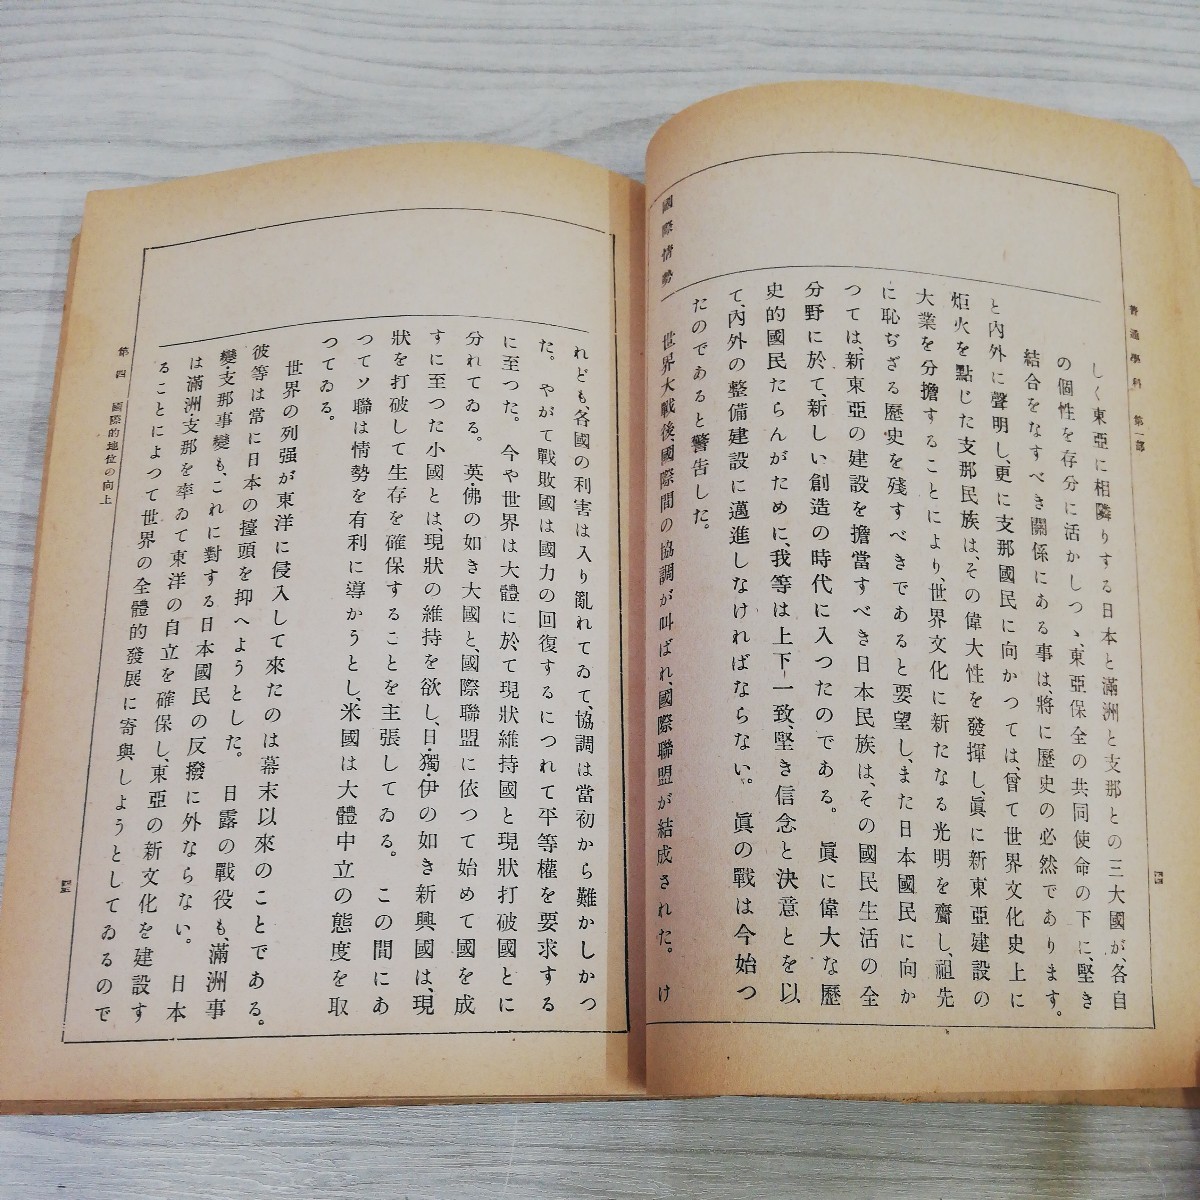 普通學科 第一部
四四
しく東亞に相隣りする日本と滿洲と支那との三大國が、各自
の個性を存分に活かしつゝ、東亞保全の共同使命の下に、堅き
結合をなすべき關係にある事は、將に歷史の必然であります。
と內外に聲明し、更に支那國民に向かつては、曾て世界文化史上に
炬火を點じた支那民族は、その偉大性を發揮し、眞に新東亞建設の
大業を分擔することにより、世界文化に新たなる光明を齎し、祖先
に恥ぢざる歷史を殘すべきであると要望し、また日本國民に向か
つては、新東亞の建設を擔當すべき日本民族は、その國民生活の全
分野に於て、新しい創造の時代に入つたのである。眞に偉大な歷
史的國民たらんがために、我等は上下一致、堅き信念と決意とを以
て、內外の整備建設に邁進しなければならない。眞の戰は今始つ
たのであると警告した。
國際情勢
世界大戰後國際間の協調が叫ばれ、國際聯盟が結成された。け
れども、各國の利害は入り亂れてゐて、協調は當初から難かしかつ
た。やがて戰敗國は國力の回復するにつれて平等權を要求する
に至つた。今や世界は大體に於て現狀維持國と現狀打破國とに
分れてゐる。英・佛の如き大國と、國際聯盟に依つて始めて國を成
すに至つた小國とは、現狀の維持を欲し、日・獨・伊の如き新興國は、現
狀を打破して生存を確保することを主張してゐる。この間にあ
つてソ聯は情勢を有利に導かうとし、米國は大體中立の態度を取
つてゐる。
世界の列强が東洋に侵入して來たのは幕末以來のことである。
彼等は常に日本の擡頭を抑へようとした。日露の戰役も、滿洲事
變・支那事變も、これに對する日本國民の反撥に外ならない。日本
は滿洲・支那を率ゐて東洋の自立を確保し、東亞の新文化を建設す
ることによつて世界の全體的發展に寄與しようとしてゐるので
第四 國際的地位の向上
四五